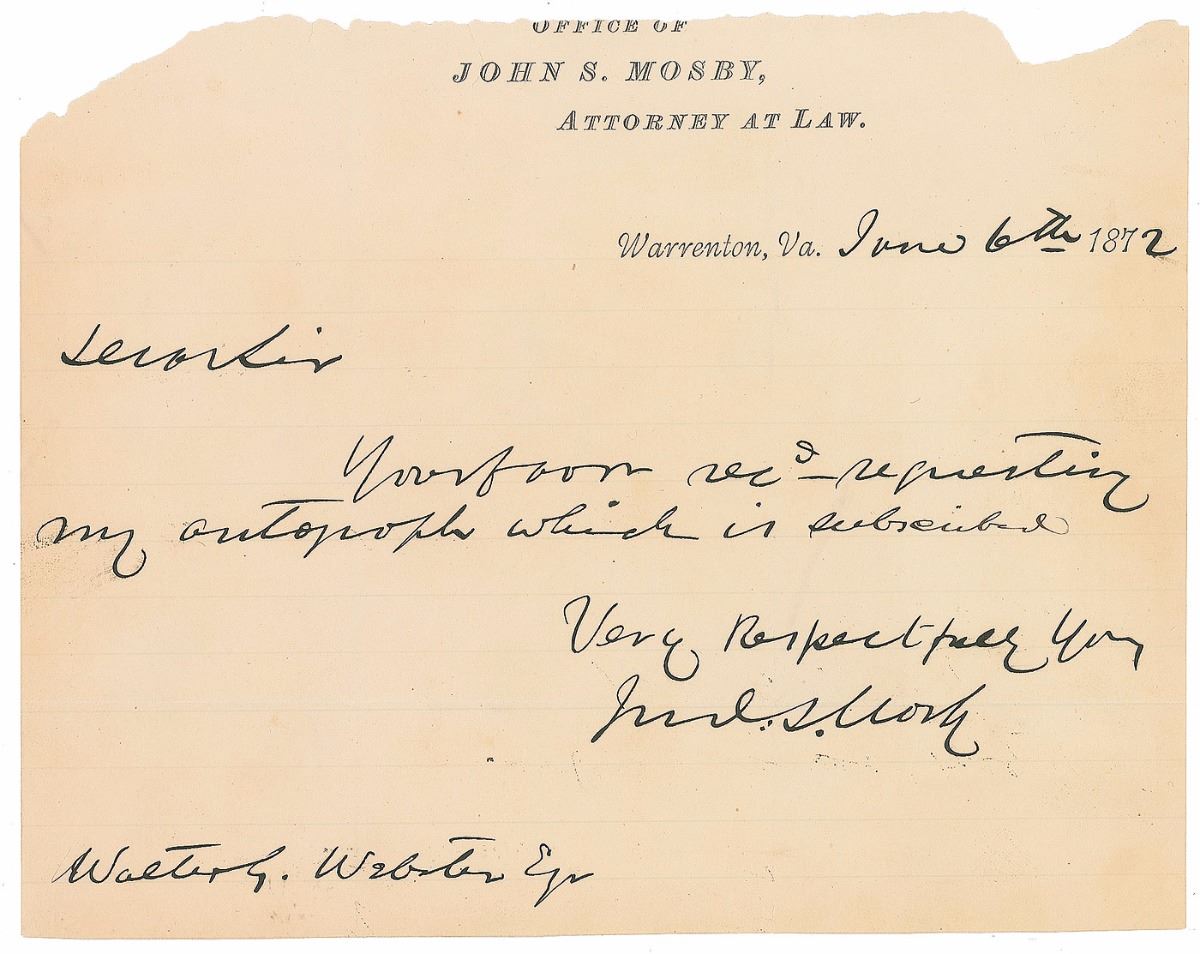 OFFICE OF
JOHN S. MOSBY,
ATTORNEY AT LAW.
Warrenton, Va. June 6th 1872
Dear Sir
Your favor recd - requesting
my autograph which is subscribed
Very Respectfully Yours
Jno. S. Mosby
Walter G. Webster Esqr